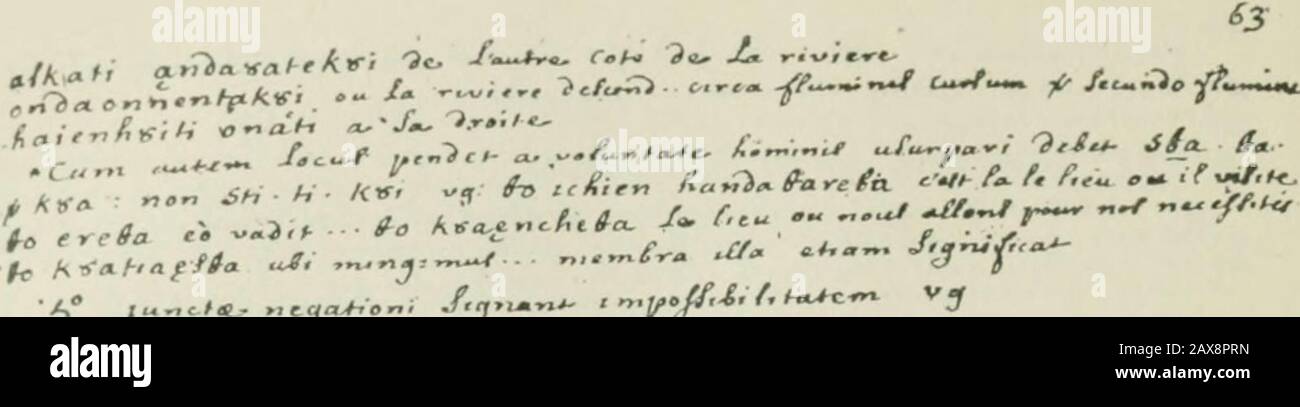 63
alkiati andaȣatekȣi de l'autre coté de la riviere
ondaonnentakȣi ou la riviere descend .. circa fluminis cursum & secundo flumine
haienhȣiti onati a sa droite
*Cum autem locus pendet a voluntate hominis usurpari debet sȣa . ȣa .
& kȣa : non sti . ti . kȣi vg: ȣo ichien handaȣareȣa c'est la le lieu ou il visite
ȣo ereȣa eò vadit ... ȣo kȣaencheȣa le lieu ou nous allons pour nos necessités
ȣo kȣatiaesȣa ubi ming:mus ... membra illa etiam significat
5° iunctæ negationi signant impossibilitatem vg
alamy
Image ID: 2AX8PRN
www.alamy.com